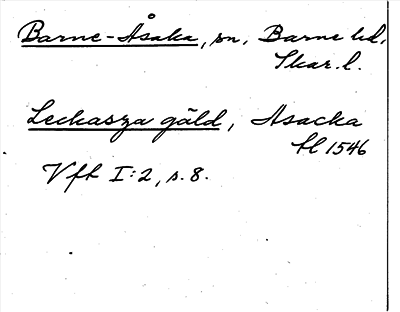 Barne-Åsaka, sn, Barne hd,
Skar. l.
Leckasza gäld, Asacka
hl 1546
Vfh I:2, s. 8.